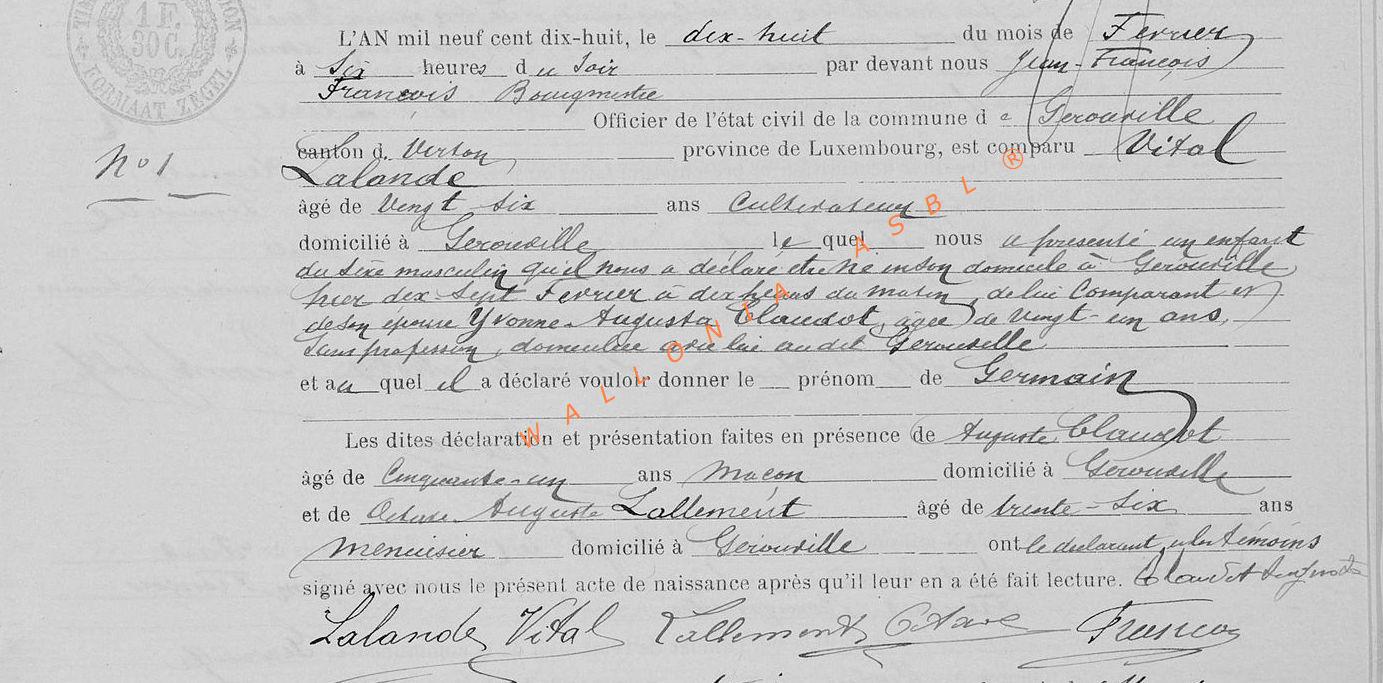 1 F.
30 C.
FORMAAT ZEGEL
L'AN mil neuf cent dix-huit, le dix-huit du mois de Fevrier
à Six heures du Soir par devant nous Jean-François
François Bourgmestre
Officier de l'état civil de la commune de Gerouville
canton d. Virton province de Luxembourg, est comparu Vital
No 1
Lalande
âgé de Vingt Six ans Cultivateur
domicilié à Gerouville le quel nous a présenté un enfant
du sexe masculin qu'il nous a déclaré etre né en son domicile à Gerouville
hier dix-Sept Fevrier à dix heures du matin, de lui Comparant et
de son épouse Yvonne-Augusta Claudot, agée de vingt-un ans,
Sans profession, domiciliée avec lui audit Gerouville
et au quel il a déclaré vouloir donner le prénom de Germain
Les dites déclaration et présentation faites en présence de Auguste Claudot
âgé de Cinquante-un ans Macon domicilié à Gerouville
et de Octave Auguste Lallement âgé de trente-Six ans
Menuisier domicilié à Gerouville ont le declarant et les témoins
signé avec nous le présent acte de naissance après qu'il leur en a été fait lecture. Claudot
Lalande Vital Lallement Octave François
WALLONIA ASBL ®